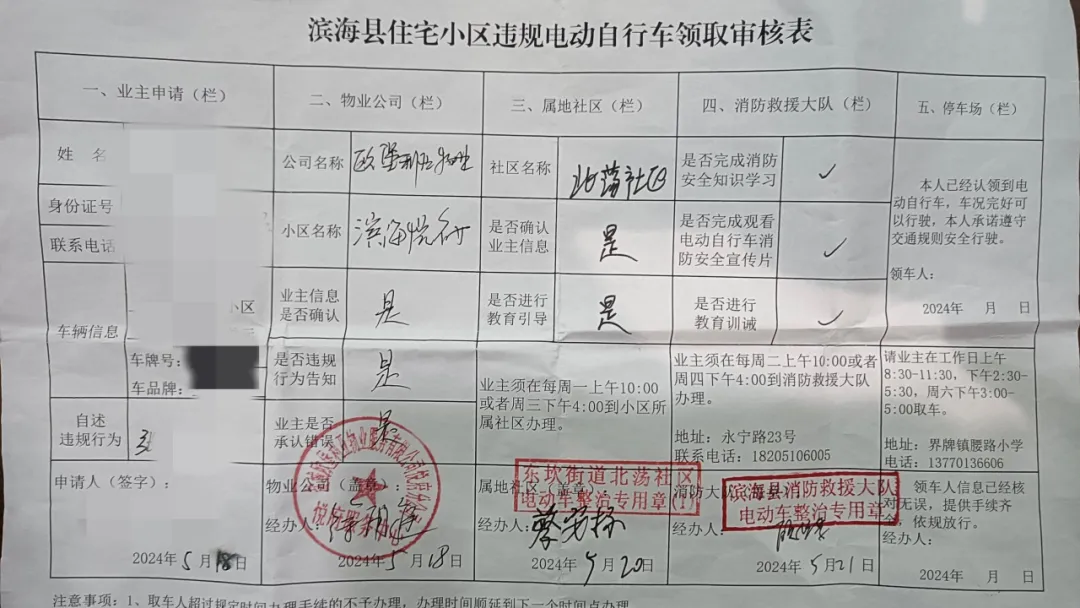 滨海县住宅小区违规电动自行车领取审核表
一、业主申请（栏）
二、物业公司（栏）
三、属地社区（栏）
四、消防救援大队（栏）
五、停车场（栏）
姓 名
公司名称
社区名称
北荡社区
是否完成消防
安全知识学习
✓
身份证号
联系电话
小区名称
滨海悦府
是否确认
业主信息
是
是否完成观看
电动自行车消
防安全宣传片
✓
本人已经认领到电
动自行车，车况完好可
以行驶，本人承诺遵守
交通规则安全行驶。
领车人：
2024年 月 日
车辆信息
小区
车牌号：
车品牌：
业主信息
是否确认
是
是否进行
教育引导
是
是否进行
教育训诫
✓
是否违规
行为告知
是
业主须在每周一上午10:00
或者周三下午4:00到小区所
属社区办理。
业主须在每周二上午10:00或者
周四下午4:00到消防救援大队
办理。
地址：永宁路23号
联系电话：18205106005
请业主在工作日上午
8:30-11:30，下午2:30-
5:30，周六下午3:00-
5:00取车。
地址：界牌镇腰路小学
电话：13770136606
自述
违规行为
业主是否
承认错误
是
申请人（签字）：
2024年5月18日
物业公司（盖章）：
经办人：
2024年5月18日
属地社区（盖章）
东坎街道北荡社区
电动车整治专用章(1)
经办人：
2024年5月20日
消防大队
滨海县消防救援大队
电动车整治专用章
经办人：
2024年5月21日
领车人信息已经核
对无误，提供手续齐
全，依规放行。
经办人：
2024年 月 日
注意事项：1、取车人超过规定时间办理手续的不予办理，办理时间顺延到下一个时间点办理